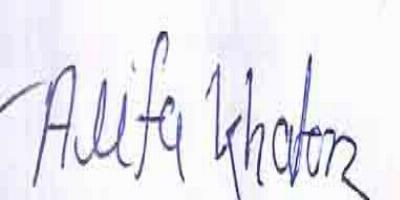 Alifa Khaton